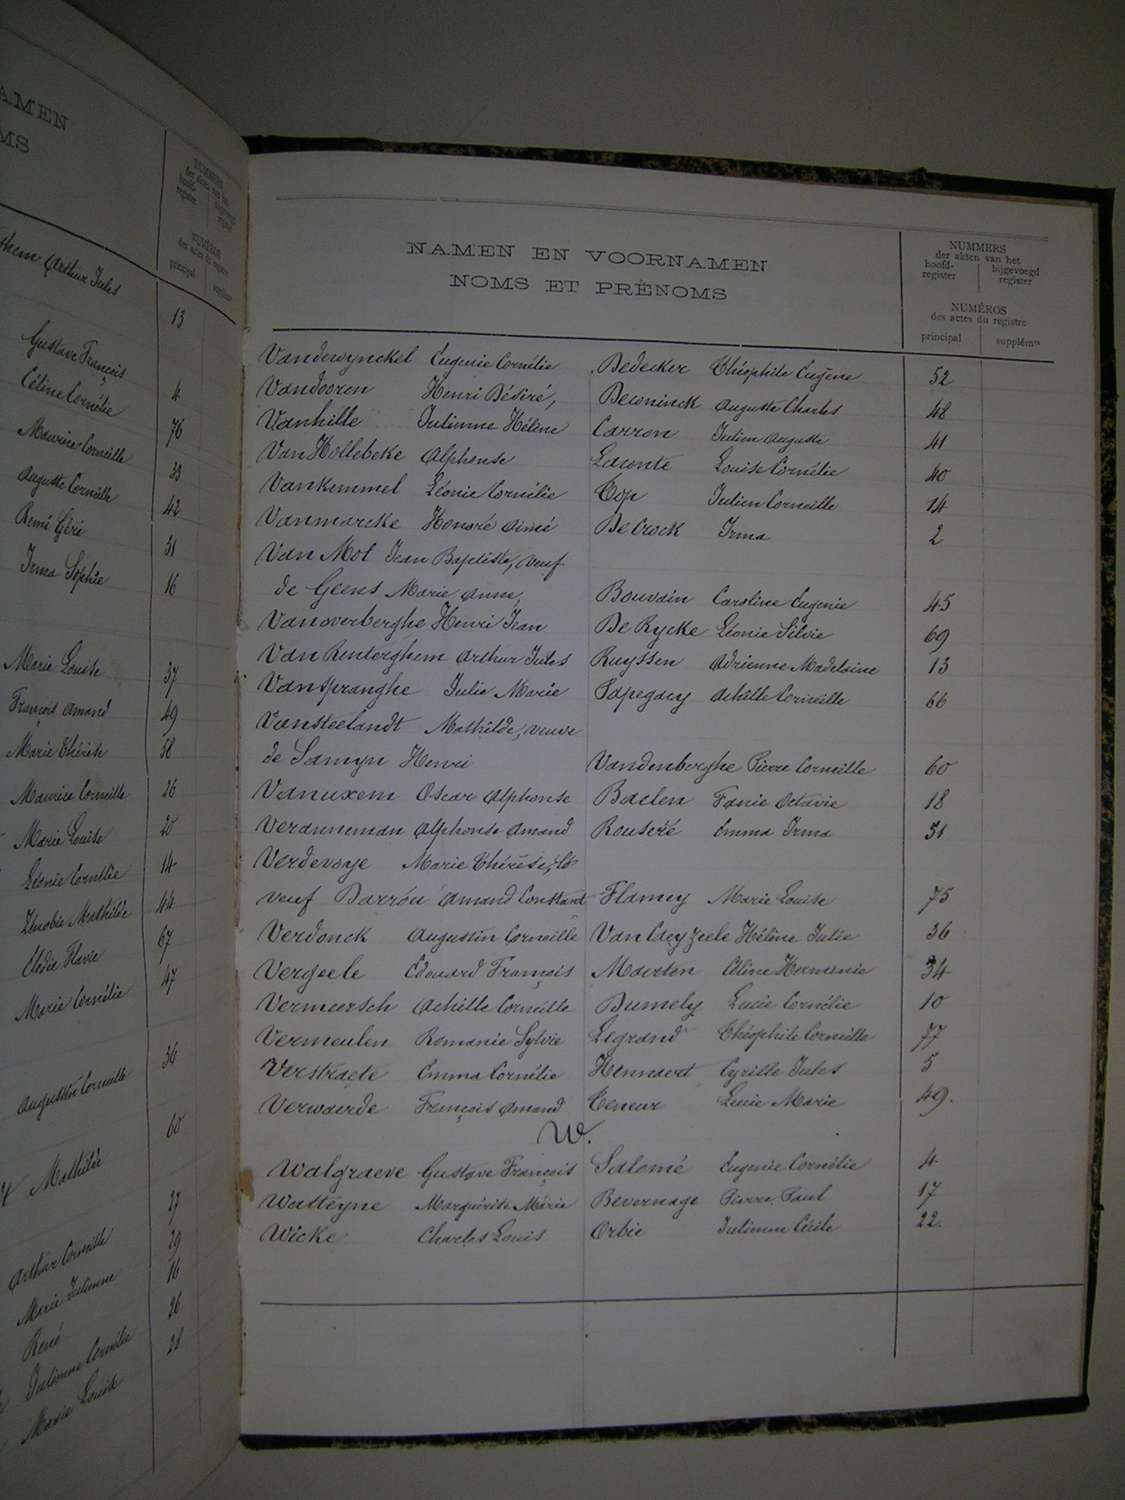 AMEN
MS
NUMMERS
der akten van het
hoofd-
register
bijgevoegd
register
NUMÉROS
des actes du registre
principal
supplém
Arthur Jules 13
Gustave François 4
Céline Cornélie 76
Maurice Corneille 33
Auguste Corneille 42
René Géri 31
Irma Sophie 16
Marie Louise 37
François Amand 49
Marie Thérèse 58
Maurice Corneille 26
Marie Louise 20
Léonie Cornélie 14
Zénobie Mathilde 44
Elodie Flavie 67
Marie Cornélie 47
Augustin Corneille 36
Mathilde 60
Arthur Corneille 27
Marie Julienne 29
René 16
Julienne Cornélie 26
Marie Louise 28
NAMEN EN VOORNAMEN
NOMS ET PRÉNOMS
NUMMERS
der akten van het
hoofd-
register
bijgevoegd
register
NUMÉROS
des actes du registre
principal
supplémre
Vandewynckel Eugenie Cornélie Dedecker Théophile Eugène 52
Vandooren Henri Désiré, Deconinck Auguste Charles 48
Vanhille Julienne Hélène Carron Julien Auguste 41
Van Hollebeke Alphonse Laconte Louise Cornélie 40
Vankemmel Léonie Cornélie Top Julien Corneille 14
Vanmarcke Honoré Aimé De Crock Irma 2
Van Mol Jean Baptiste, veuf
de Geens Marie Anne, Bouvain Caroline Eugenie 45
Vanoverberghe Henri Jean De Rycke Léonie Silvie 69
Van Renterghem Arthur Jules Ruyssen Adrienne Madelaine 13
Vanspranghe Julie Marie Papegaey Achille Corneille 66
Vansteelandt Mathilde, veuve
de Samyn Henri Vandenberghe Pierre Corneille 60
Vanuxem Oscar Alphonse Baelen Fanie Octavie 18
Veranneman Alphonse Amand Rouseré Emma Irma 51
Verdevoye Marie Thérèse,
veuf Darrou Amand Constant Flamey Marie Louise 75
Verdonck Augustin Corneille Van Caeyzeele Hélène Julie 36
Vergeele Edouard François Maerten Céline Hermanie 34
Vermeersch Achille Corneille Dumely Lucie Cornélie 10
Vermeulen Romanie Sylvie Legrand Théophile Corneille 77
Verstraete Emma Cornélie Hennaert Cyrille Jules 5
Verwaerde François Amand Teneur Lucie Marie 49.
W.
Walgraeve Gustave François Salomé Eugenie Cornélie 4
Watteyne Marguerite Marie Bevernage Pierre Paul 17
Wicke Charles Louis Orbie Julienne Cécile 22.